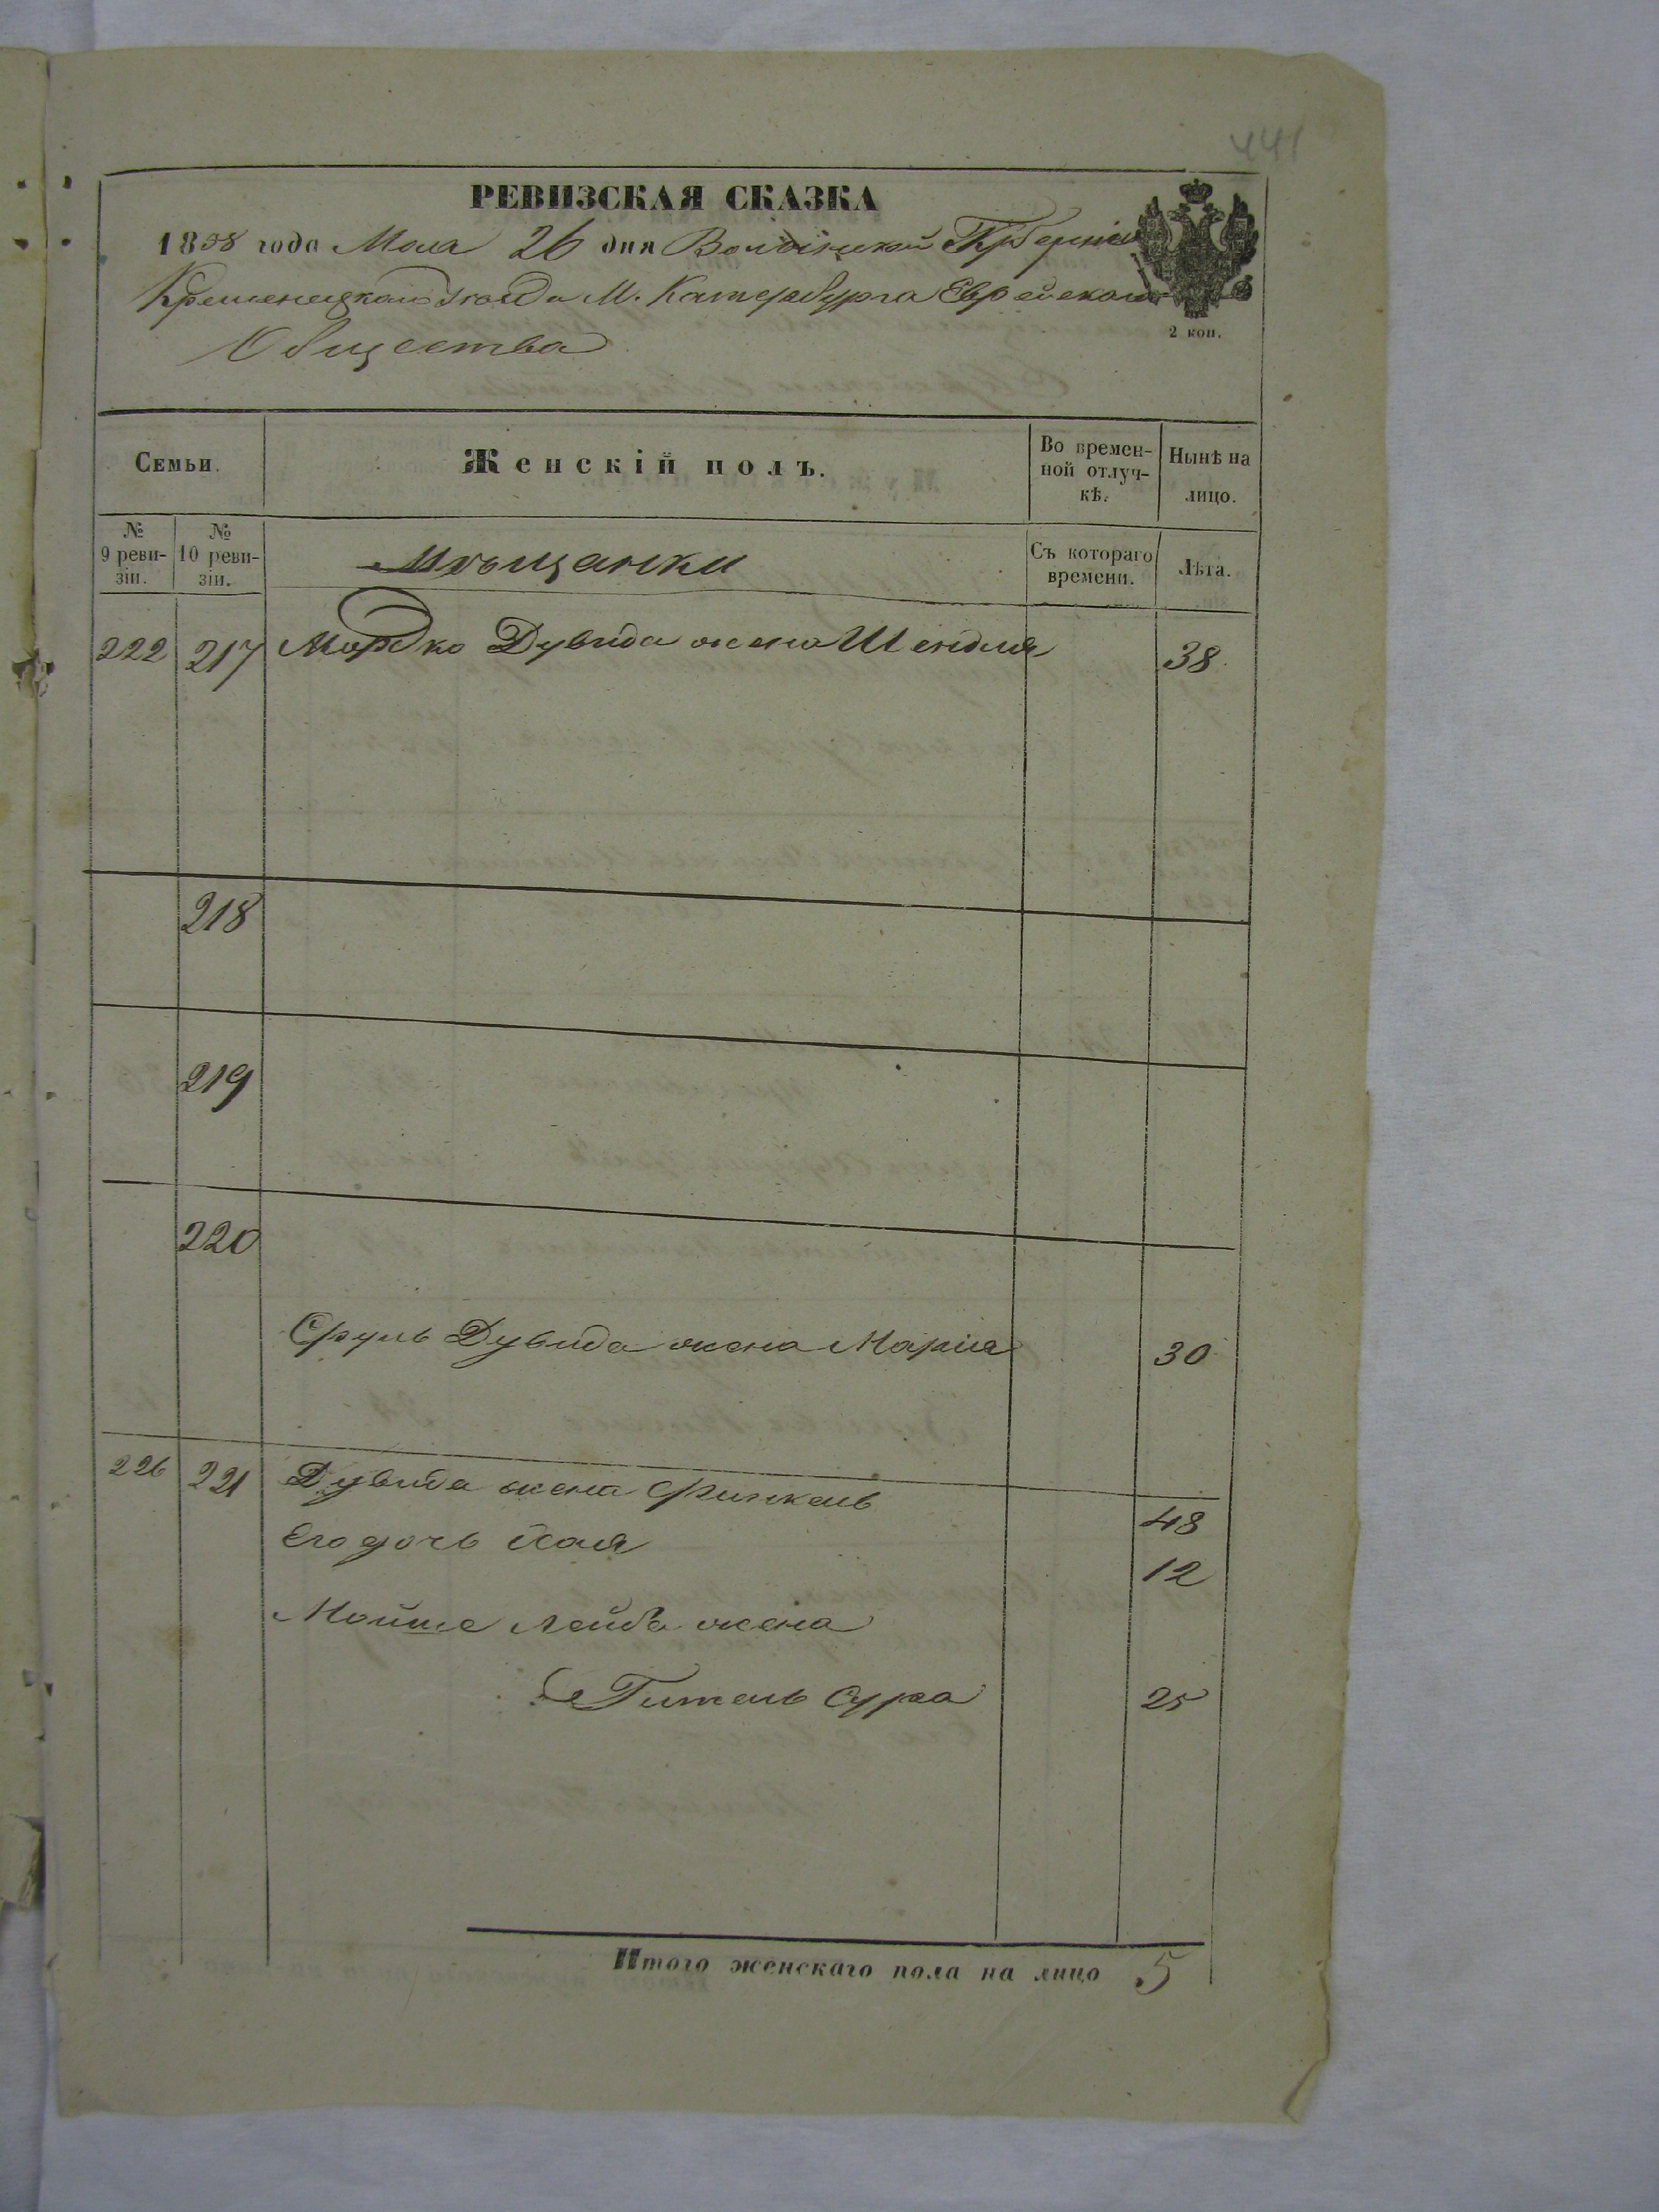 441
РЕВИЗСКАЯ СКАЗКА
1858 года Мая 26 дня Волынской Губернии
Кременецкаго Уезда М. Катербурга Еврейскаго
Общества
2 коп.
Семьи. Женскій полъ. Во времен-ной отлуч-кѣ. Нынѣ на лицо.
№ 9 реви-зіи. № 10 реви-зіи. Мѣщанки Съ котораго времени. Лѣта.
222 217 Мордко Дувида жена Шендля 38
218
219
220
Сруль Дувида жена Марія 30
226 221 Дувида жена Финкель 48
Его дочь Хая 12
Мойше Лейба жена
Гитель Сура 25
Итого женскаго пола на лицо 5